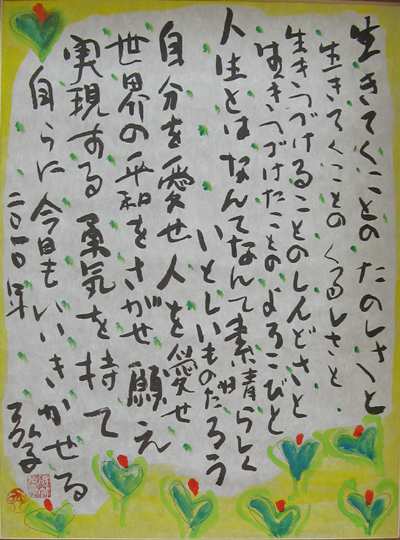 生きてくことの たのしさと
生きてくことの くるしさと
生きつづけることのしんどさと
生きつづけたことの よろこびと
人生とは なんてなんて素晴らしく
いとしいものだろう
自分を愛せ 人を愛せ
世界の平和をさがせ 願え
実現する勇気を持て
自らに 今日も いいきかせる
二〇一〇年